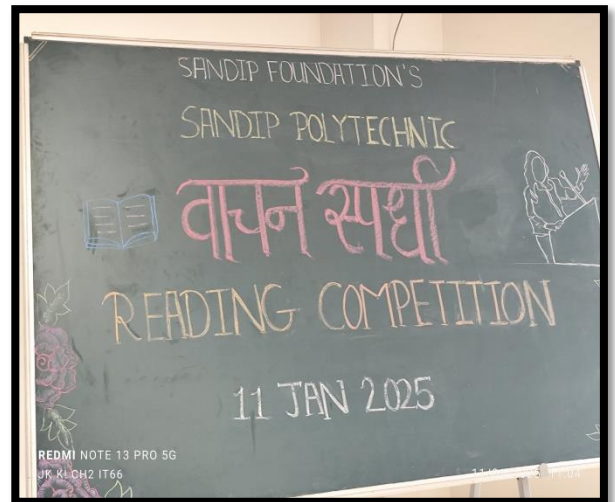 SANDIP FOUNDATION'S
SANDIP POLYTECHNIC
वाचन स्पर्धा
READING COMPETITION
11 JAN 2025
REDMI NOTE 13 PRO 5G
JK KI CH2 IT66